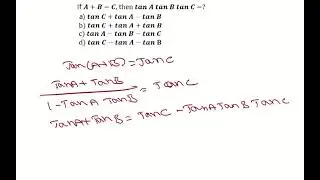 If A + B = C, then tan A tan B tan C =?
a) tan C + tan A − tan B
b) tan C + tan A + tan B
c) tan B − tan B − tan C
d) tan C − tan A − tan B
Tan(A+B) = Tan C
TanA + TanB
1 - TanA TanB
= Tan C
TanA + TanB = TanC - TanA TanB TanC